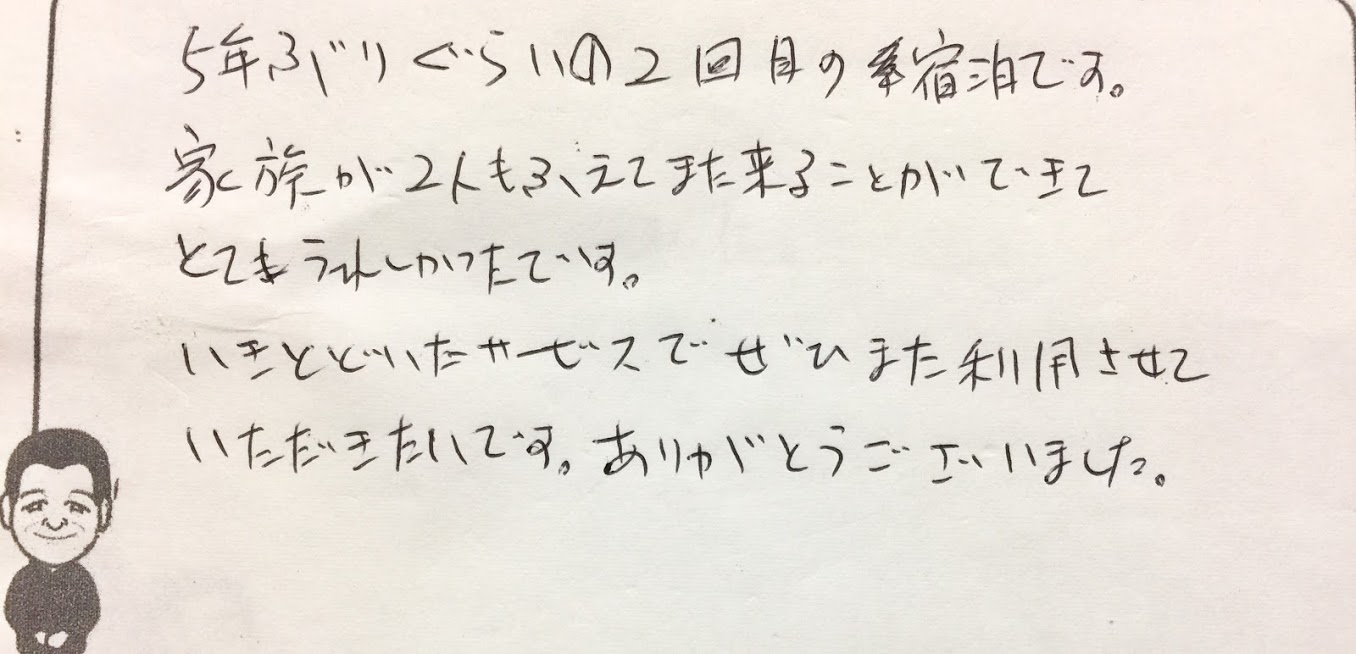 5年ぶりぐらいの2回目の宿泊です。
家族が2人もふえてまた来ることができて
とてもうれしかったです。
いきとどいたサービスでぜひまた利用させて
いただきたいです。ありがとうございました。